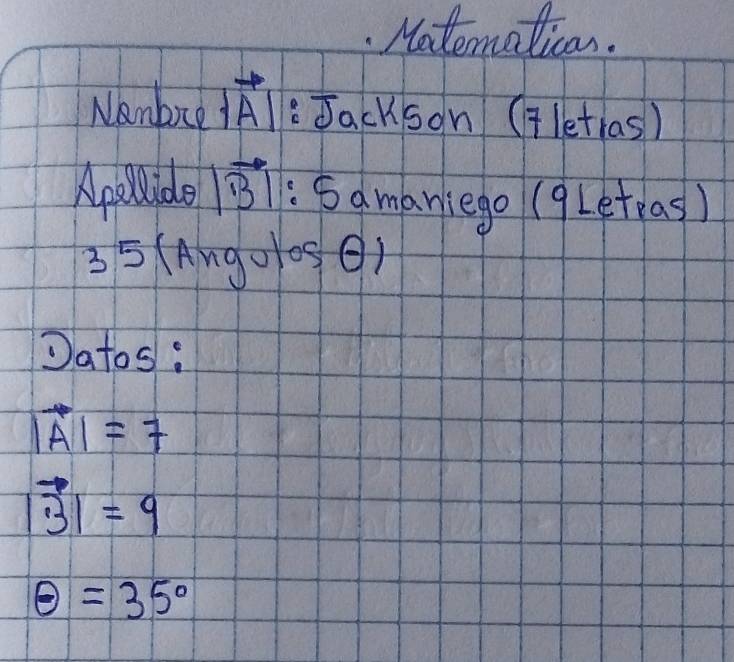 . Matematicas.
Nombre |A⃗| : Jackson (7 letras)
Apellido |B⃗| : Samaniego (9 Letras)
35 (Angulos θ)
Datos :
|A⃗| = 7
|B⃗| = 9
θ = 35°